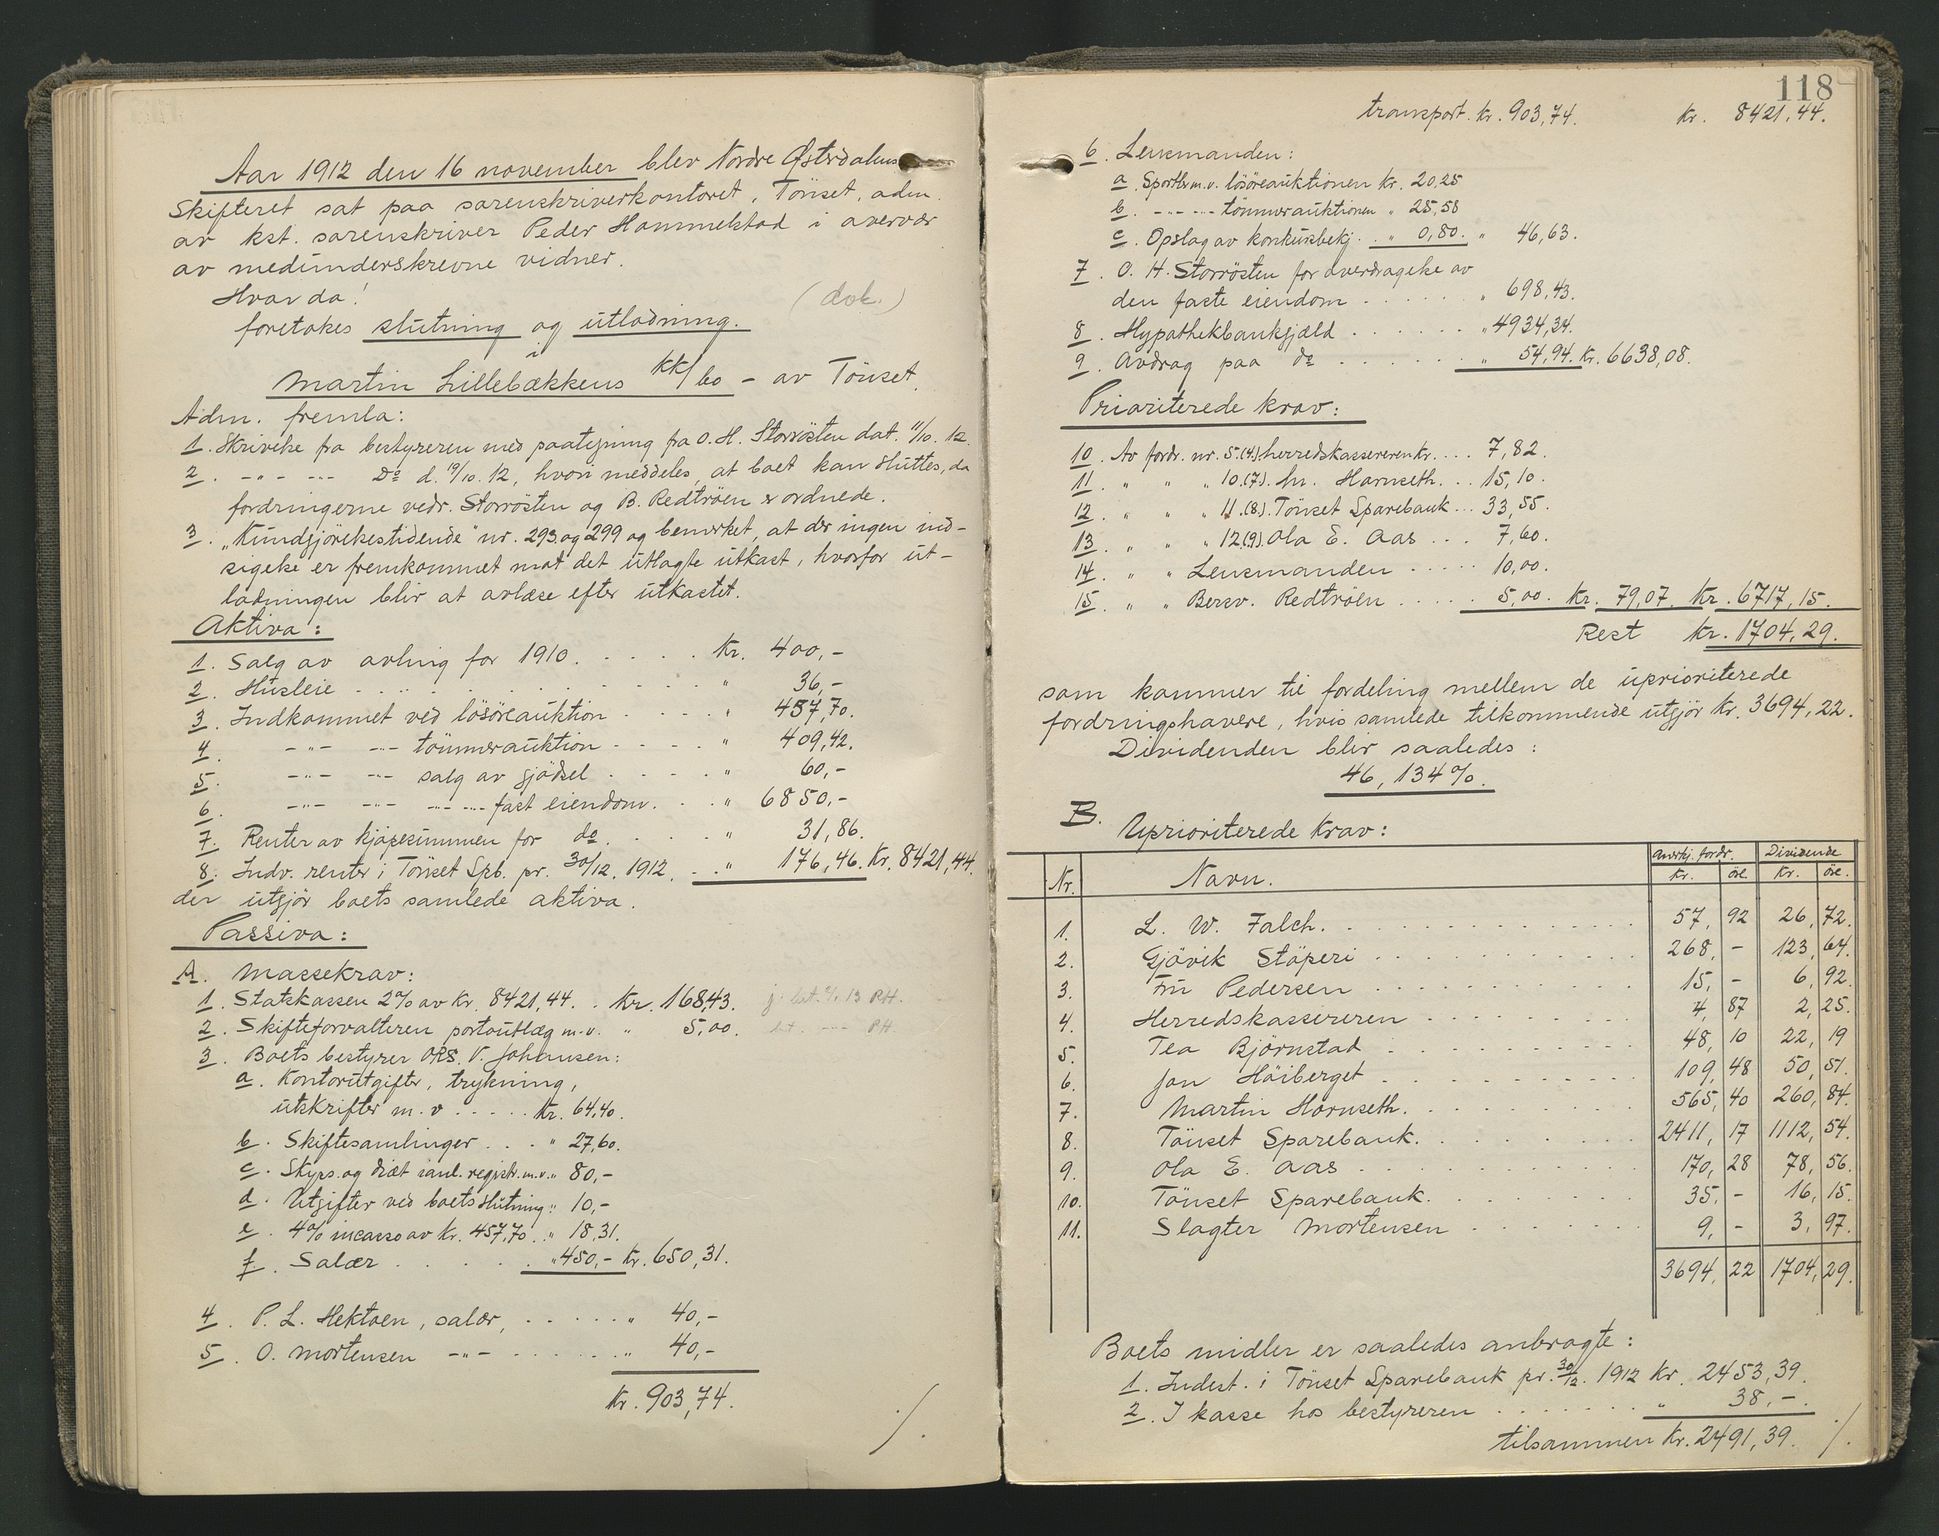 Aar 1912 den 16 november blev Nordre Østerdalens
Skifteret sat paa sorenskriverkontoret, Tönset, adm.
av kst. sorenskriver Peder Hammelstad i overvær
av medunderskrevne vidner.
Hvorda!
(dok.)
foretokes slutning og utlodning.
i
Martin Lillebækkens kk/bo - av Tönset.
Adm. fremla:
1. Skrivelse fra bestyreren med paategning fra O. H. Storrösten dat. 11/10. 12.
2. -"- --- Do d. 19/10. 12, hvori meddeles, at boet kan sluttes, da
fordringerne vedr. Storrösten og B. Redtröen er ordnede.
3. "Kundgjörelsestidende" nr. 293 og 299 og bemerket, at der ingen ind-
sigelse er fremkommet mot det utlagte utkast, hvorfor ut-
lodningen blir at avlæse efter utkastet.
Aktiva:
1. Salg av avling for 1910. . . . . . Kr. 400,-
2. Husleie . . . . . . . . . . " 36,-
3. Indkommet ved lösöreauktion . . . . " 457,70.
4. -"- --- tömmerauktion . . . . " 409,42.
5. -"- --- salg av gjödsel . . . . " 60,-
6. -"- --- -"- --- fast eiendom. . . " 6850,-
7. Renter av kjöpesummen for do . . . . " 31,86.
8. Indv. renter i Tönset Spb. pr. 30/12. 1912. . . " 176,46. Kr. 8421,44.
der utgjör boets samlede aktiva.
Passiva:
A. Massekrav:
1. Statskassen 2% av Kr. 8421,44. . Kr. 168,43.
2. Skifteforvalteren portoutlæg m.v. " 5,00.
3. Boets bestyrer ORS. V. Johansen:
a. Kontorutgifter, trykning,
utskrifter m.v . . . . . Kr. 64,40.
b. Skiftesamlinger . . . " 27,60.
c. Skyss og diæt saml. registr. m.v. " 80,-
d. Utgifter ved boets slutning " 10,-
e. 4% incasso av Kr. 457,70 . " 18,31.
f. Salær . . . . . . " 450,- Kr. 650,31.
4. P. L. Hektoen, salær, . . . . . " 40,-
5. O. Mortensen -"- . . . . . . " 40,-
Kr. 903,74.
./.
118
transport. Kr. 903,74. Kr. 8421,44.
6. Lensmanden:
a. Sportler m.v. lösöreauktionen Kr. 20,25
b. -"- --- tömmerauktionen " 25,58
c. Opslag av konkursbekj. . " 0,80. " 46,63.
7. O. H. Storrösten for overdragelse av
den faste eiendom . . . . . . " 698,43.
8. Hypothekbankgjæld . . . . . . " 4934,34.
9. Avdrag paa do . . . . . . " 54,94. Kr. 6638,08.
Prioriterede krav:
10. Av fordr. nr. 5.(4). herredskassereren Kr. . . . 7,82.
11. " " " 10.(7). M. Hornseth. . . 15,10.
12. " " " 11.(8). Tönset Sparebank . . . 33,55.
13. " " " 12.(9). Ola E. Aas . . . 7,60.
14. " " Lensmanden . . . . . 10,00.
15. " " Bersv. Redtröen . . . . . 5,00. Kr. 79,07. Kr. 6717,15.
Rest Kr. 1704,29.
som kommer til fordeling mellem de uprioriterede
fordringshavere, hvis samlede tilkommende utgjör Kr. 3694,22.
Dividenden blir saaledes:
46,134%.
B. Uprioriterede krav:
Nr. Navn. Anerkj. fordr. Dividende
Kr. öre. Kr. öre.
1. L. W. Falch. 57, 92 26, 72.
2. Gjövik Stöperi 268, - 123, 64.
3. Fru Pedersen 15, - 6, 92.
4. Herredskassereren 4, 87 2, 25.
5. Tea Björnstad 48, 10 22, 19
6. Jon Höiberget 109, 48 50, 51.
7. Martin Hornseth. 565, 40 260, 84.
8. Tönset Sparebank. 2411, 17 1112, 54.
9. Ola E. Aas 170, 28 78, 56.
10. Tönset Sparebank. 35, - 16, 15.
11. Slagter Mortensen 9, - 3, 97.
3694, 22 1704, 29.
Boets midler er saaledes anbragte:
1. Indest. i Tönset Sparebank pr. 30/12. 1912 Kr. 2453,39.
2. I kasse hos bestyreren . . . . . . . " 38,-.
tilsammen Kr. 2491,39. ./.